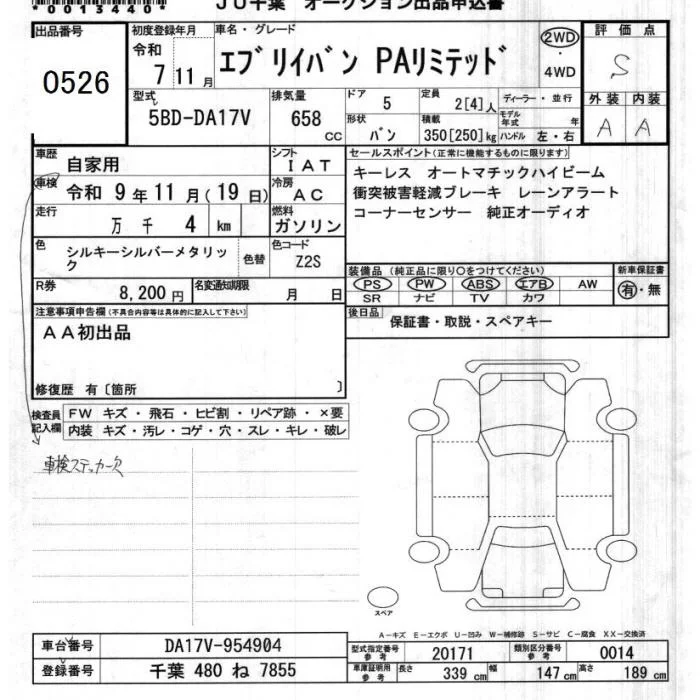 *0013440*
JU千葉 オークション出品申込書
出品番号
0526
初度登録年月
令和 7 11 月
車名・グレード
エブリイバン PAリミテッド
2WD
・
4WD
評価点
S
外装 内装
A A
型式
5BD-DA17V
排気量
658 cc
ドア 5
定員 2[4] 人
ディーラー・並行
形状 バン
積載 350[250] kg
モデル年式 年
ハンドル 左・右
車歴 自家用
シフト IAT
車検 令和 9 年 11 月 ( 19 日)
冷房 AC
走行 万 千 4 km
燃料 ガソリン
色 シルキーシルバーメタリック
色替
色コード Z2S
R券 8,200 円
名変通知期限 月 日
セールスポイント(正常に機能するものに限ります)
キーレス オートマチックハイビーム
衝突被害軽減ブレーキ レーンアラート
コーナーセンサー 純正オーディオ
装備品 (純正品に限り○をつけてください)
PS PW ABS エアB AW
SR ナビ TV カワ
新車保証書
有・無
後日品 保証書・取説・スペアキー
注意事項申告欄(不具合内容等は具体的に記入して下さい)
AA初出品
修復歴 有〔箇所 〕
検査員記入欄
FW キズ・飛石・ヒビ割・リペア跡・×要
内装 キズ・汚レ・コゲ・穴・スレ・キレ・破レ
車検ステッカー欠
スペア
A-キズ E-エクボ U-凹み W-補修跡 S-サビ C-腐食 XX-交換済
車台番号 DA17V-954904
登録番号 千葉 480 ね 7855
型式指定番号 参考 20171
類別区分番号 参考 0014
車庫証明用 参考 長さ 339 cm 幅 147 cm 高さ 189 cm